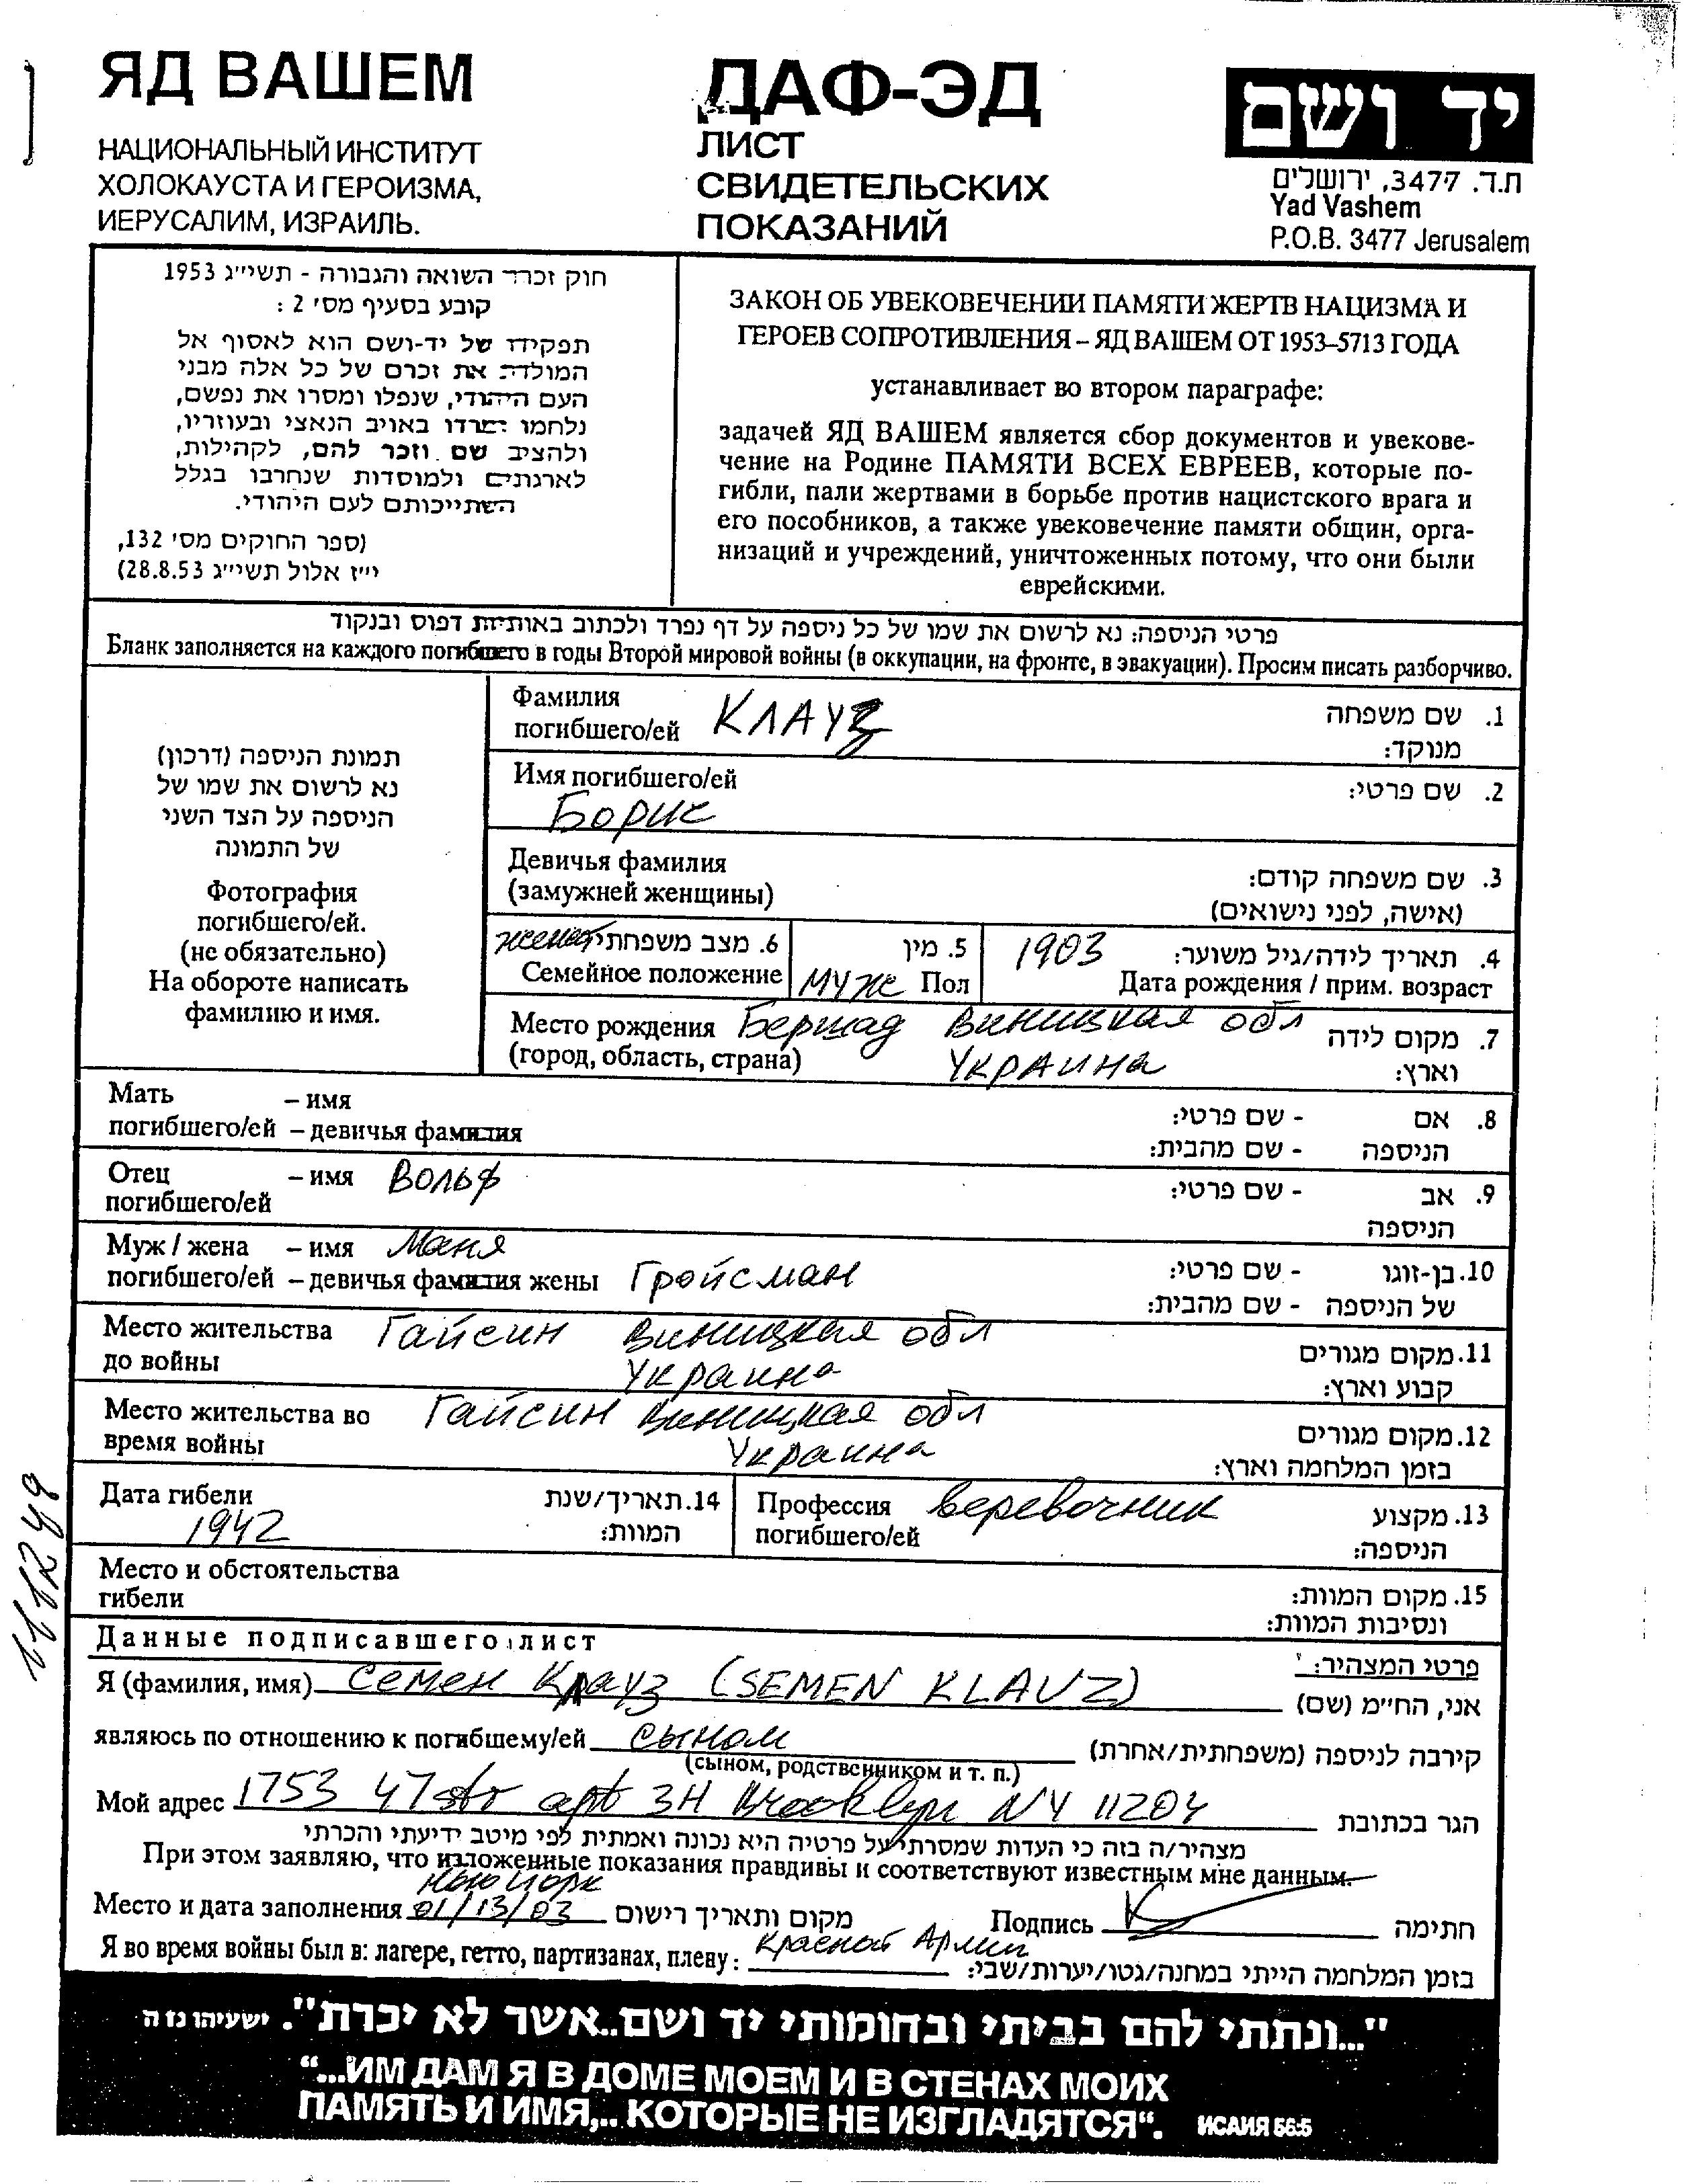 ЯД ВАШЕМ
НАЦИОНАЛЬНЫЙ ИНСТИТУТ
ХОЛОКАУСТА И ГЕРОИЗМА,
ИЕРУСАЛИМ, ИЗРАИЛЬ.
ДАФ-ЭД
ЛИСТ
СВИДЕТЕЛЬСКИХ
ПОКАЗАНИЙ
יד ושם
ת.ד. 3477, ירושלים
Yad Vashem
P.O.B. 3477 Jerusalem
חוק זכרון השואה והגבורה - תשי״ג 1953
קובע בסעיף מס׳ 2 :
תפקידו של יד-ושם הוא לאסוף אל
המולדת את זכרם של כל אלה מבני
העם היהודי, שנפלו ומסרו את נפשם,
נלחמו ומרדו באויב הנאצי ובעוזריו,
ולהציב שם וזכר להם, לקהילות,
לארגונים ולמוסדות שנחרבו בגלל
השתייכותם לעם היהודי.
(ספר החוקים מס׳ 132,
י״ז אלול תשי״ג 28.8.53)
ЗАКОН ОБ УВЕКОВЕЧЕНИИ ПАМЯТИ ЖЕРТВ НАЦИЗМА И
ГЕРОЕВ СОПРОТИВЛЕНИЯ – ЯД ВАШЕМ ОТ 1953–5713 ГОДА
устанавливает во втором параграфе:
задачей ЯД ВАШЕМ является сбор документов и увекове-
чение на Родине ПАМЯТИ ВСЕХ ЕВРЕЕВ, которые по-
гибли, пали жертвами в борьбе против нацистского врага и
его пособников, а также увековечение памяти общин, орга-
низаций и учреждений, уничтоженных потому, что они были
еврейскими.
פרטי הניספה: נא לרשום את שמו של כל ניספה על דף נפרד ולכתוב באותיות דפוס ובנקוד
Бланк заполняется на каждого погибшего в годы Второй мировой войны (в оккупации, на фронте, в эвакуации). Просим писать разборчиво.
תמונת הניספה (דרכון)
נא לרשום את שמו של
הניספה על הצד השני
של התמונה
Фотография
погибшего/ей.
(не обязательно)
На обороте написать
фамилию и имя.
Фамилия
погибшего/ей КЛАУЗ
1. שם משפחה
מנוקד:
Имя погибшего/ей
Борис
2. שם פרטי:
Девичья фамилия
(замужней женщины)
3. שם משפחה קודם:
(אישה, לפני נישואים)
6. מצב משפחתי женат
Семейное положение
5. מין
муж Пол
4. תאריך לידה/גיל משוער: 1903
Дата рождения / прим. возраст
Место рождения Бершад Виницкая обл
(город, область, страна) Украина
7. מקום לידה
וארץ:
Мать – имя
погибшего/ей – девичья фамилия
8. אם - שם פרטי:
הניספה - שם מהבית:
Отец – имя Вольф
погибшего/ей
9. אב - שם פרטי:
הניספה
Муж / жена – имя Маня
погибшего/ей – девичья фамилия жены Гройсман
10. בן-זוגו - שם פרטי:
של הניספה - שם מהבית:
Место жительства Гайсин Виницкая обл
до войны Украина
11. מקום מגורים
קבוע וארץ:
Место жительства во Гайсин Виницкая обл
время войны Украина
12. מקום מגורים
בזמן המלחמה וארץ:
Дата гибели
1942
14. תאריך/שנת
המוות:
Профессия веревочник
погибшего/ей
13. מקצוע
הניספה:
Место и обстоятельства
гибели
15. מקום המוות:
ונסיבות המוות:
Данные подписавшего лист
פרטי המצהיר:
Я (фамилия, имя) Семен Клауз (SEMEN KLAUZ) אני, החי״מ (שם)
являюсь по отношению к погибшему/ей сыном קירבה לניספה (משפחתית/אחרת)
(сыном, родственником и т. п.)
Мой адрес 1753 47 str apt 3H Brooklyn NY 11204 הגר בכתובת
מצהיר/ה בזה כי העדות שמסרתי על פרטיה היא נכונה ואמתית לפי מיטב ידיעתי והכרתי
При этом заявляю, что изложенные показания правдивы и соответствуют известным мне данным.
Нью Йорк
Место и дата заполнения 01/13/03 מקום ותאריך רישום Подпись חתימה
Я во время войны был в: лагере, гетто, партизанах, плену: Красной Армии
בזמן המלחמה הייתי במחנה/גטו/יערות/שבי:
"...ונתתי להם בביתי ובחומותי יד ושם..אשר לא יכרת". ישעיהו נו ה
“...ИМ ДАМ Я В ДОМЕ МОЕМ И В СТЕНАХ МОИХ
ПАМЯТЬ И ИМЯ,.. КОТОРЫЕ НЕ ИЗГЛАДЯТСЯ“. ИСАИЯ 56:5